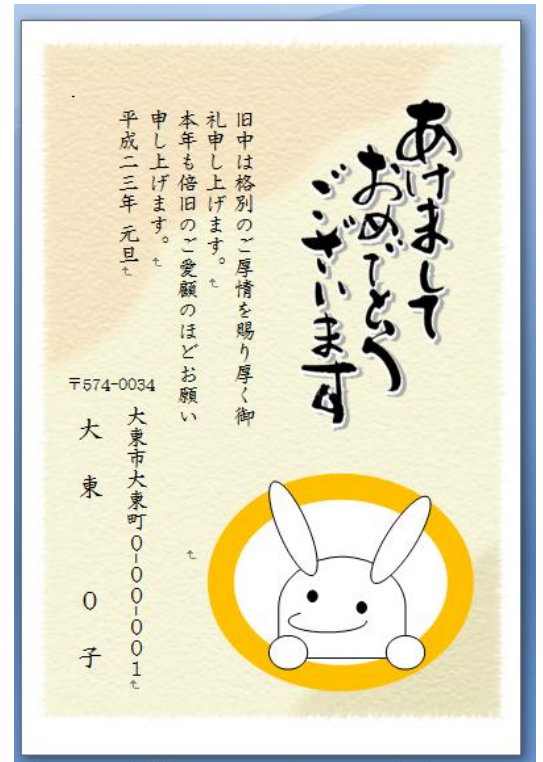 あけまして
おめでとう
ございます
旧中は格別のご厚情を賜り厚く御
礼申し上げます。
本年も倍旧のご愛顧のほどお願い
申し上げます。
平成二三年 元旦
〒574-0034
大東市大東町0-00-001
大東 0子